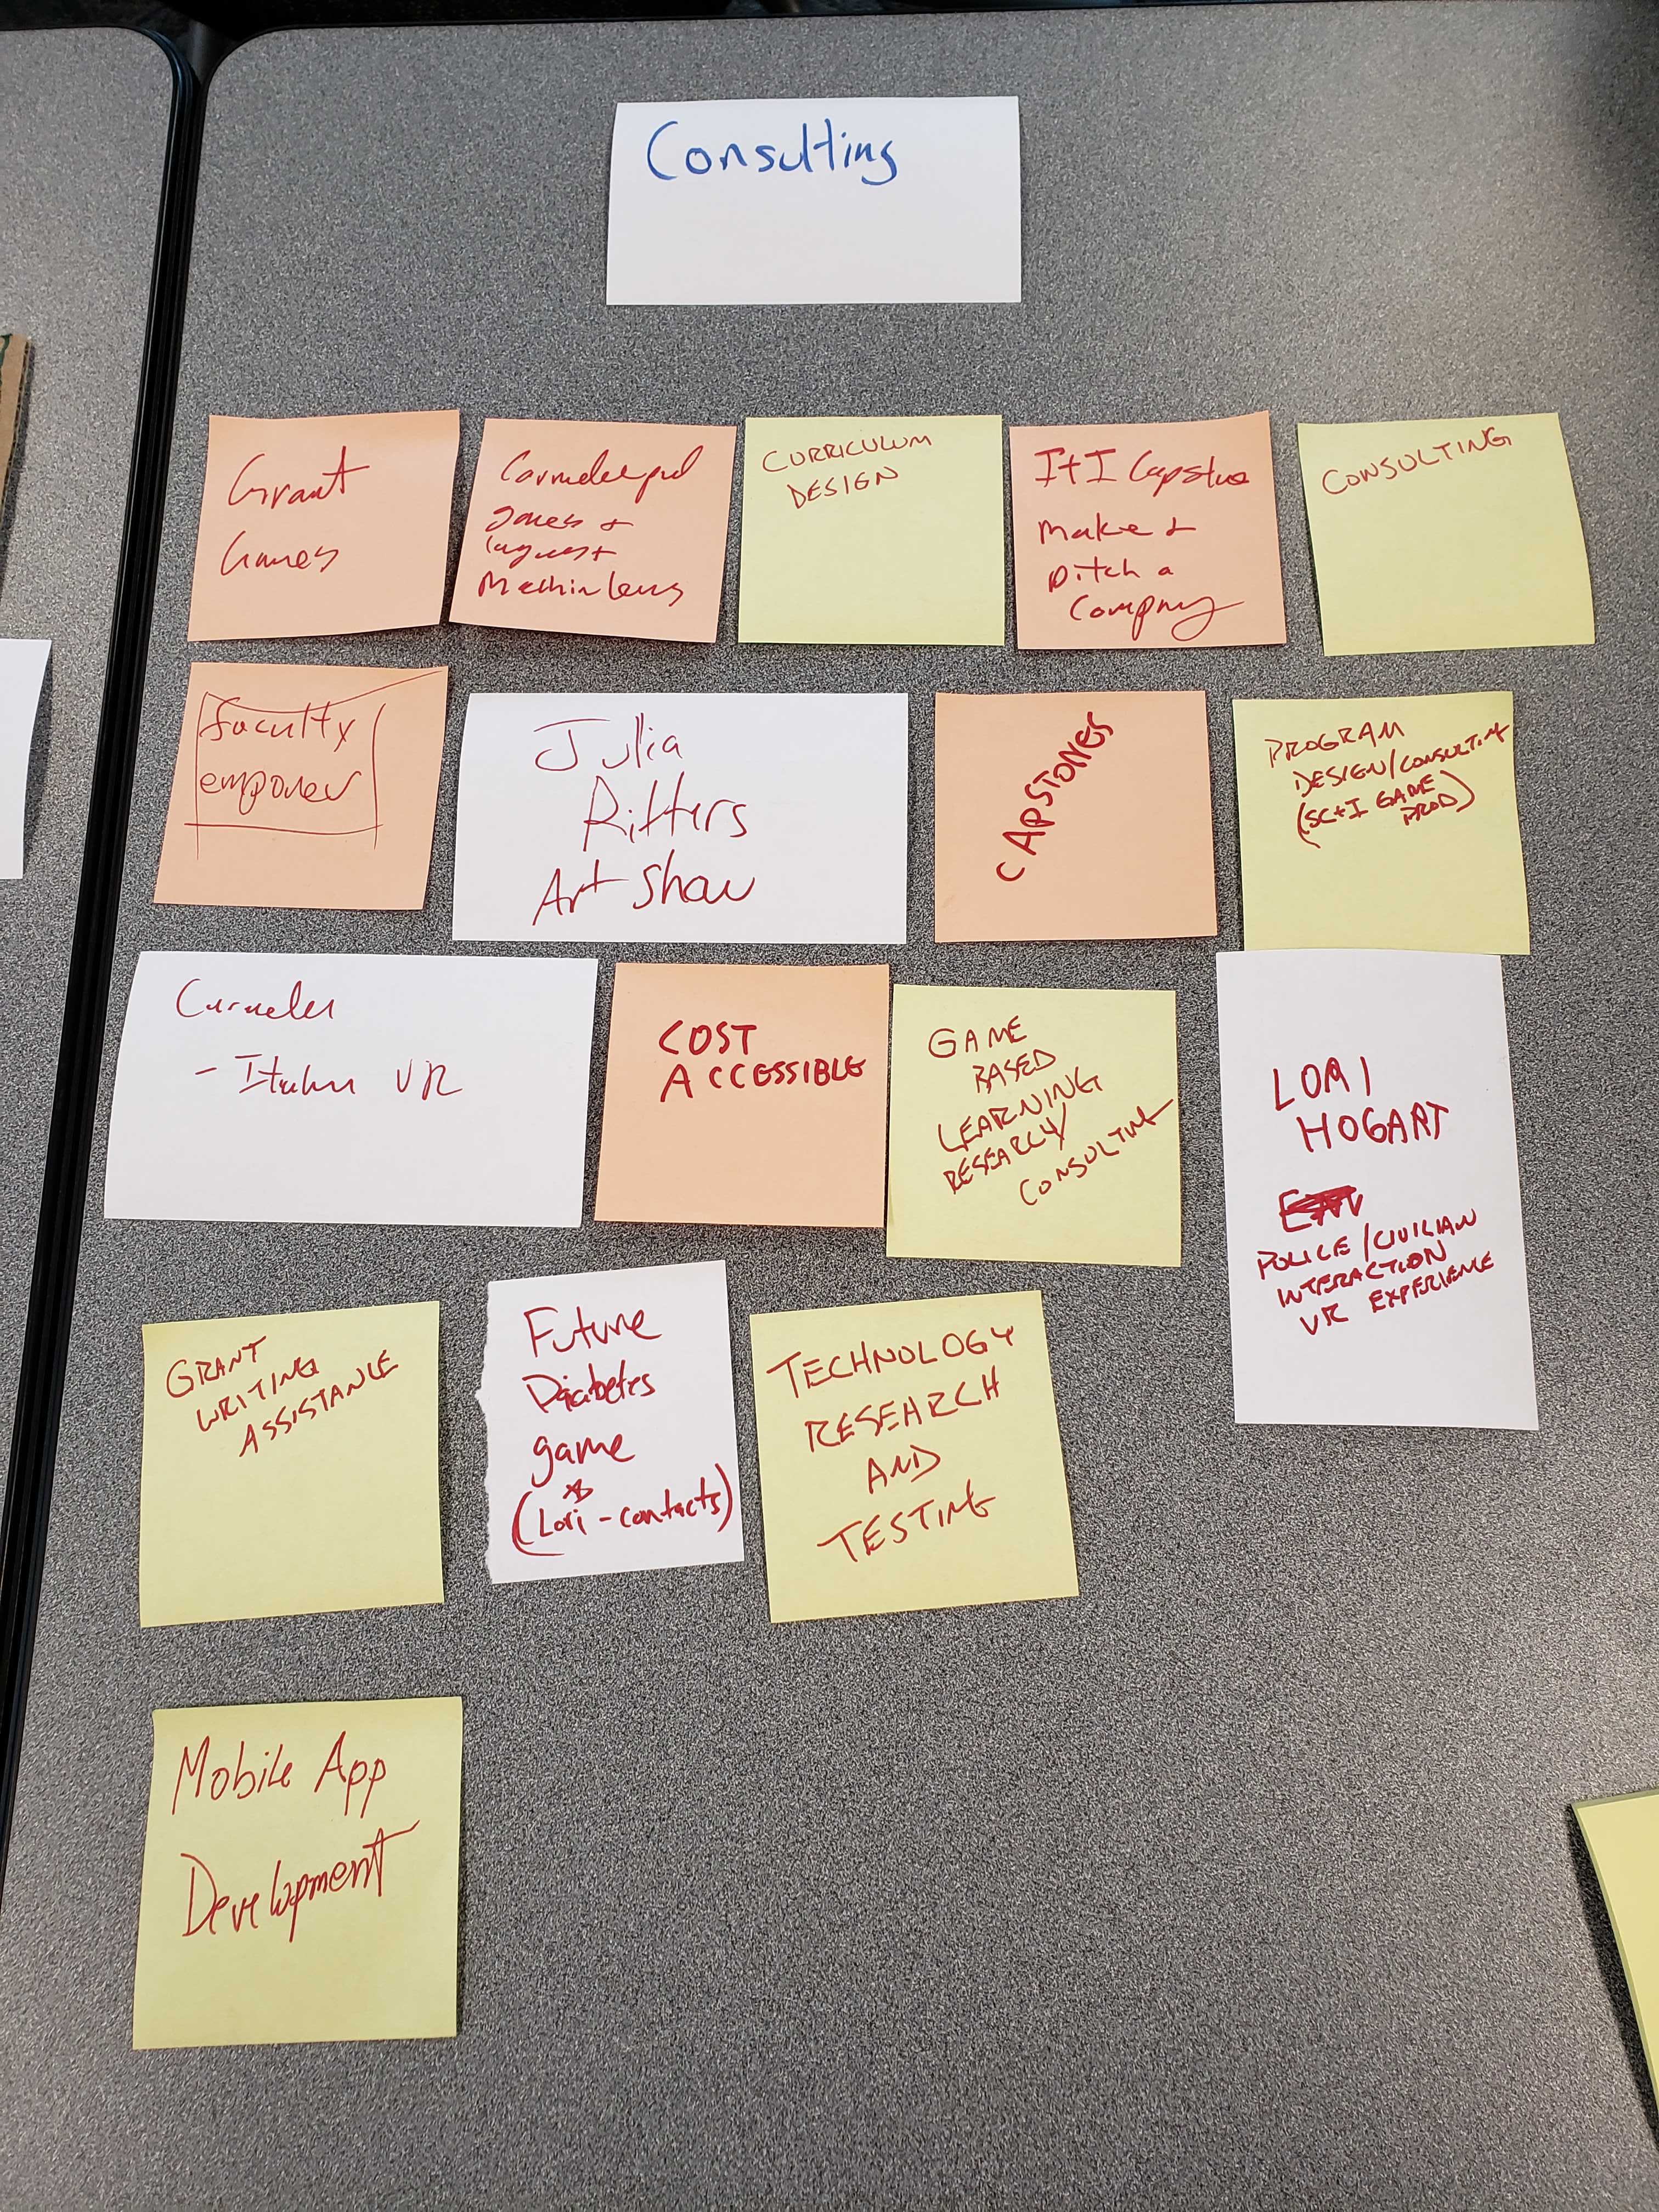 Consulting
Grant
Games
Games +
Language +
CURRICULUM
DESIGN
I+I Capstone
Make +
pitch a
Company
CONSULTING
faculty
empower
Julia
Ritters
Art Show
CAPSTONES
PROGRAM
DESIGN/CONSULTING
(SC+I GAME
PROD)
- Italian VR
COST
ACCESSIBLE
GAME
BASED
LEARNING
RESEARCH/
CONSULTING
LORI
HOGART
POLICE/CIVILIAN
INTERACTION
VR EXPERIENCE
GRANT
WRITING
ASSISTANCE
Future
Diabetes
game
(Lori - contacts)
TECHNOLOGY
RESEARCH
AND
TESTING
Mobile App
Development